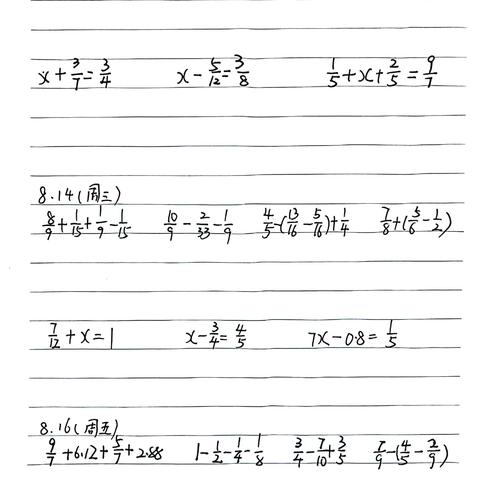 x+3/7=3/4 x-5/12=3/8 1/5+x+2/5=9/7
8.14(周三)
8/9+1/15+1/9-1/15 10/9-2/33-1/9 4/5-(13/16-5/16)+1/4 7/8+(5/6-1/2)
7/12+x=1 x-3/4=4/5 7x-0.8=1/5
8.16(周五)
9/7+6.12+5/7+2.88 1-1/2-1/4-1/8 3/4-7/10+3/5 7/9-(4/5-2/9)